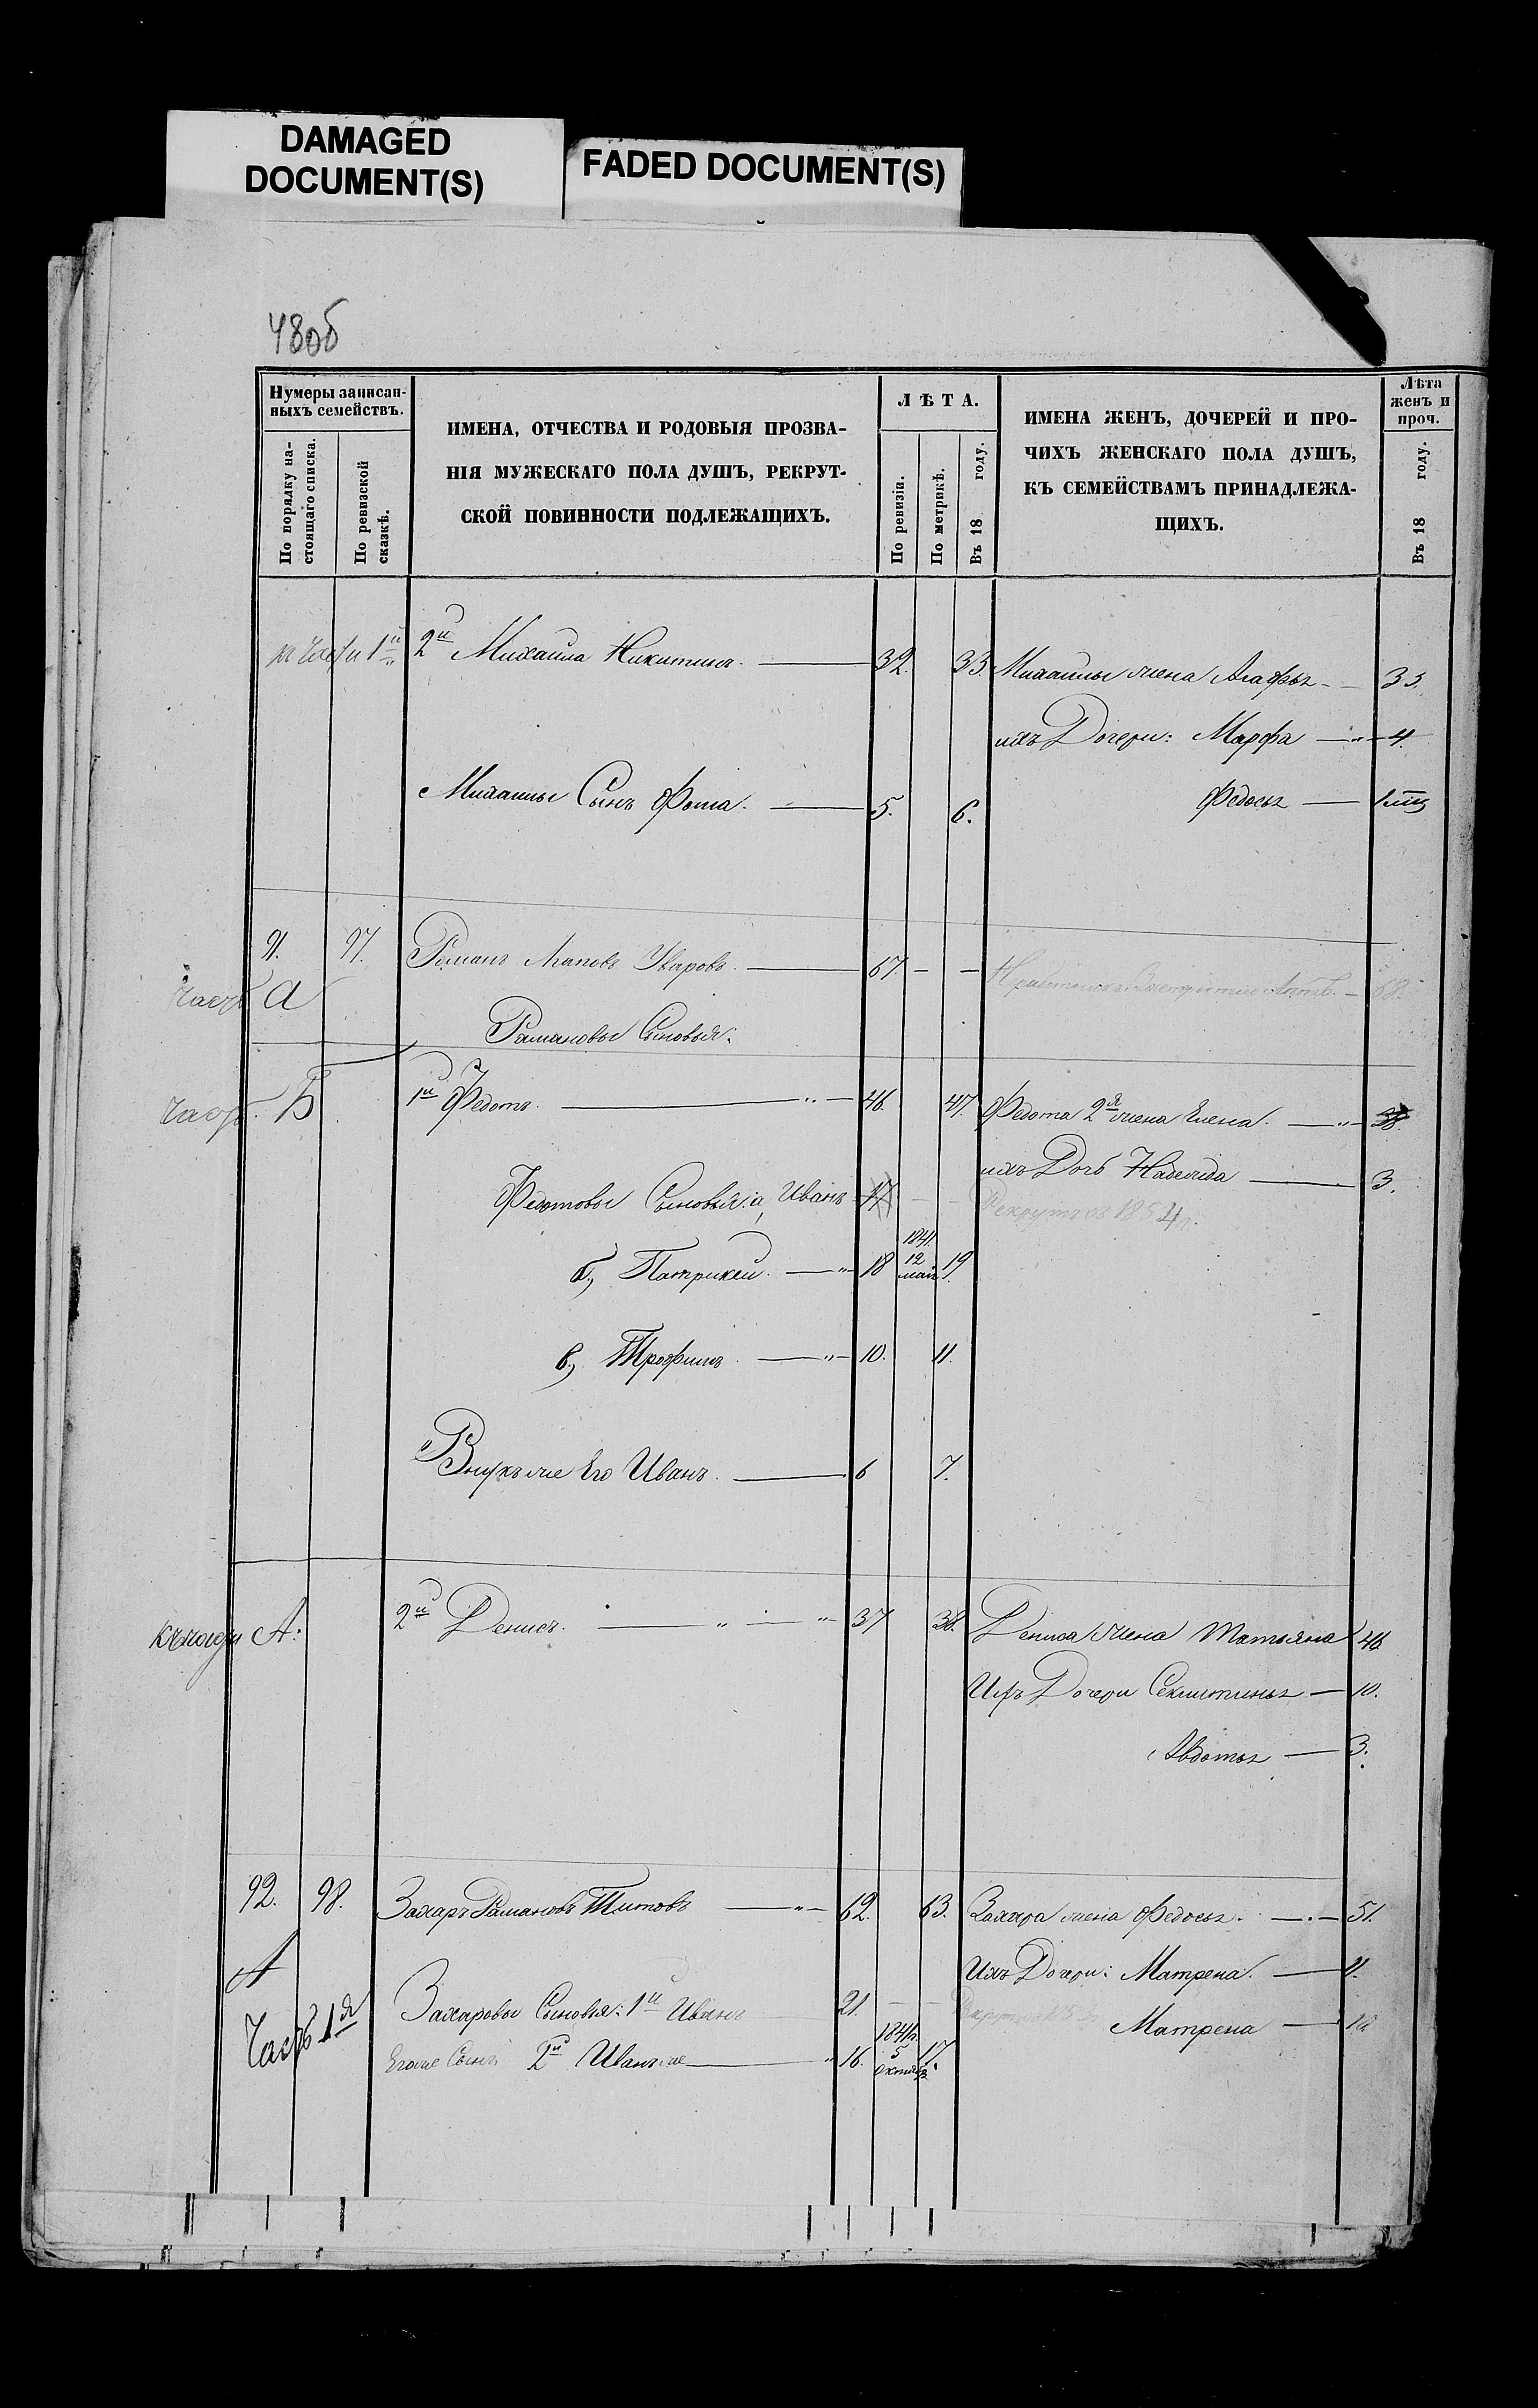 DAMAGED
DOCUMENT(S)
FADED DOCUMENT(S)
48об
Нумеры записан-
ныхъ семействъ.
По порядку на-
стоящаго списка.
По ревизской
сказкѣ.
ИМЕНА, ОТЧЕСТВА И РОДОВЫЯ ПРОЗВА-
НІЯ МУЖЕСКАГО ПОЛА ДУШЪ, РЕКРУТ-
СКОЙ ПОВИННОСТИ ПОДЛЕЖАЩИХЪ.
ЛѢТА.
По ревизіи.
По метрикѣ.
Въ 18 году.
ИМЕНА ЖЕНЪ, ДОЧЕРЕЙ И ПРО-
ЧИХЪ ЖЕНСКАГО ПОЛА ДУШЪ,
КЪ СЕМЕЙСТВАМЪ ПРИНАДЛЕЖА-
ЩИХЪ.
Лѣта
женъ и
проч.
Въ 18 году.
1й 2й Михаила Никитинъ. 32. 33. Михаилы жена Агафья 33.
ихъ Дочери: Марфа 4.
Михаилы Сынъ Фома. 5. 6. Федосья
91. 97. Романъ Уваровъ. 67. — —
Часть А
Романовы Сыновья:
Часть Б 1й Федотъ. 46. 47. Федота 2я жена Елена. 38.
ихъ Дочь Надежда 3.
Федотовы Сыновья: а, Иванъ 17 — — Рекрутъ въ 1854 г.
б, Патрикей. 18 1841 12 мая 19
в, Трофимъ 10. 11.
Внукъ же Его Иванъ. 6 7.
А: 2й Денисъ. 37 38. Дениса жена Татьяна 46
Ихъ Дочери Секлитинья 10.
Авдотья 3.
92. 98. Захаръ Романовъ Титовъ 62. 63. Захара жена Федосья. 51.
А
Ихъ Дочери: Матрена. 11.
Часть 1я Захаровы Сыновья: 1й Иванъ 21. — —
Матрена 10.
Егоже Сынъ 2й Иванъ же 16. 1841 5 октября 17.